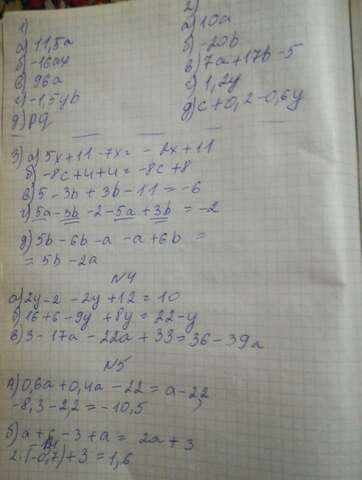 1)
а) 11,5a
б) -16ay
в) 96a
г) -1,5yb
д) pq
2)
а) 10a
б) -20b
в) 7a + 17b - 5
г) 1,2y
д) c + 0,2 - 0,6y
3) а) 5x + 11 - 7x = - 2x + 11
б) -8c + 4 + 4 = -8c + 8
в) 5 - 3b + 3b - 11 = -6
г) 5a - 3b - 2 - 5a + 3b = -2
д) 5b - 6b - a - a + 6b =
= 5b - 2a
N4
а) 2y - 2 - 2y + 12 = 10
б) 16 + 6 - 9y + 8y = 22 - y
в) 3 - 17a - 22a + 33 = 36 - 39a
N5
А) 0,6a + 0,4a - 22 = a - 22
-8,3 - 2,2 = -10,5
б) a + 6 - 3 + a = 2a + 3
2·(-0,7) + 3 = 1,6